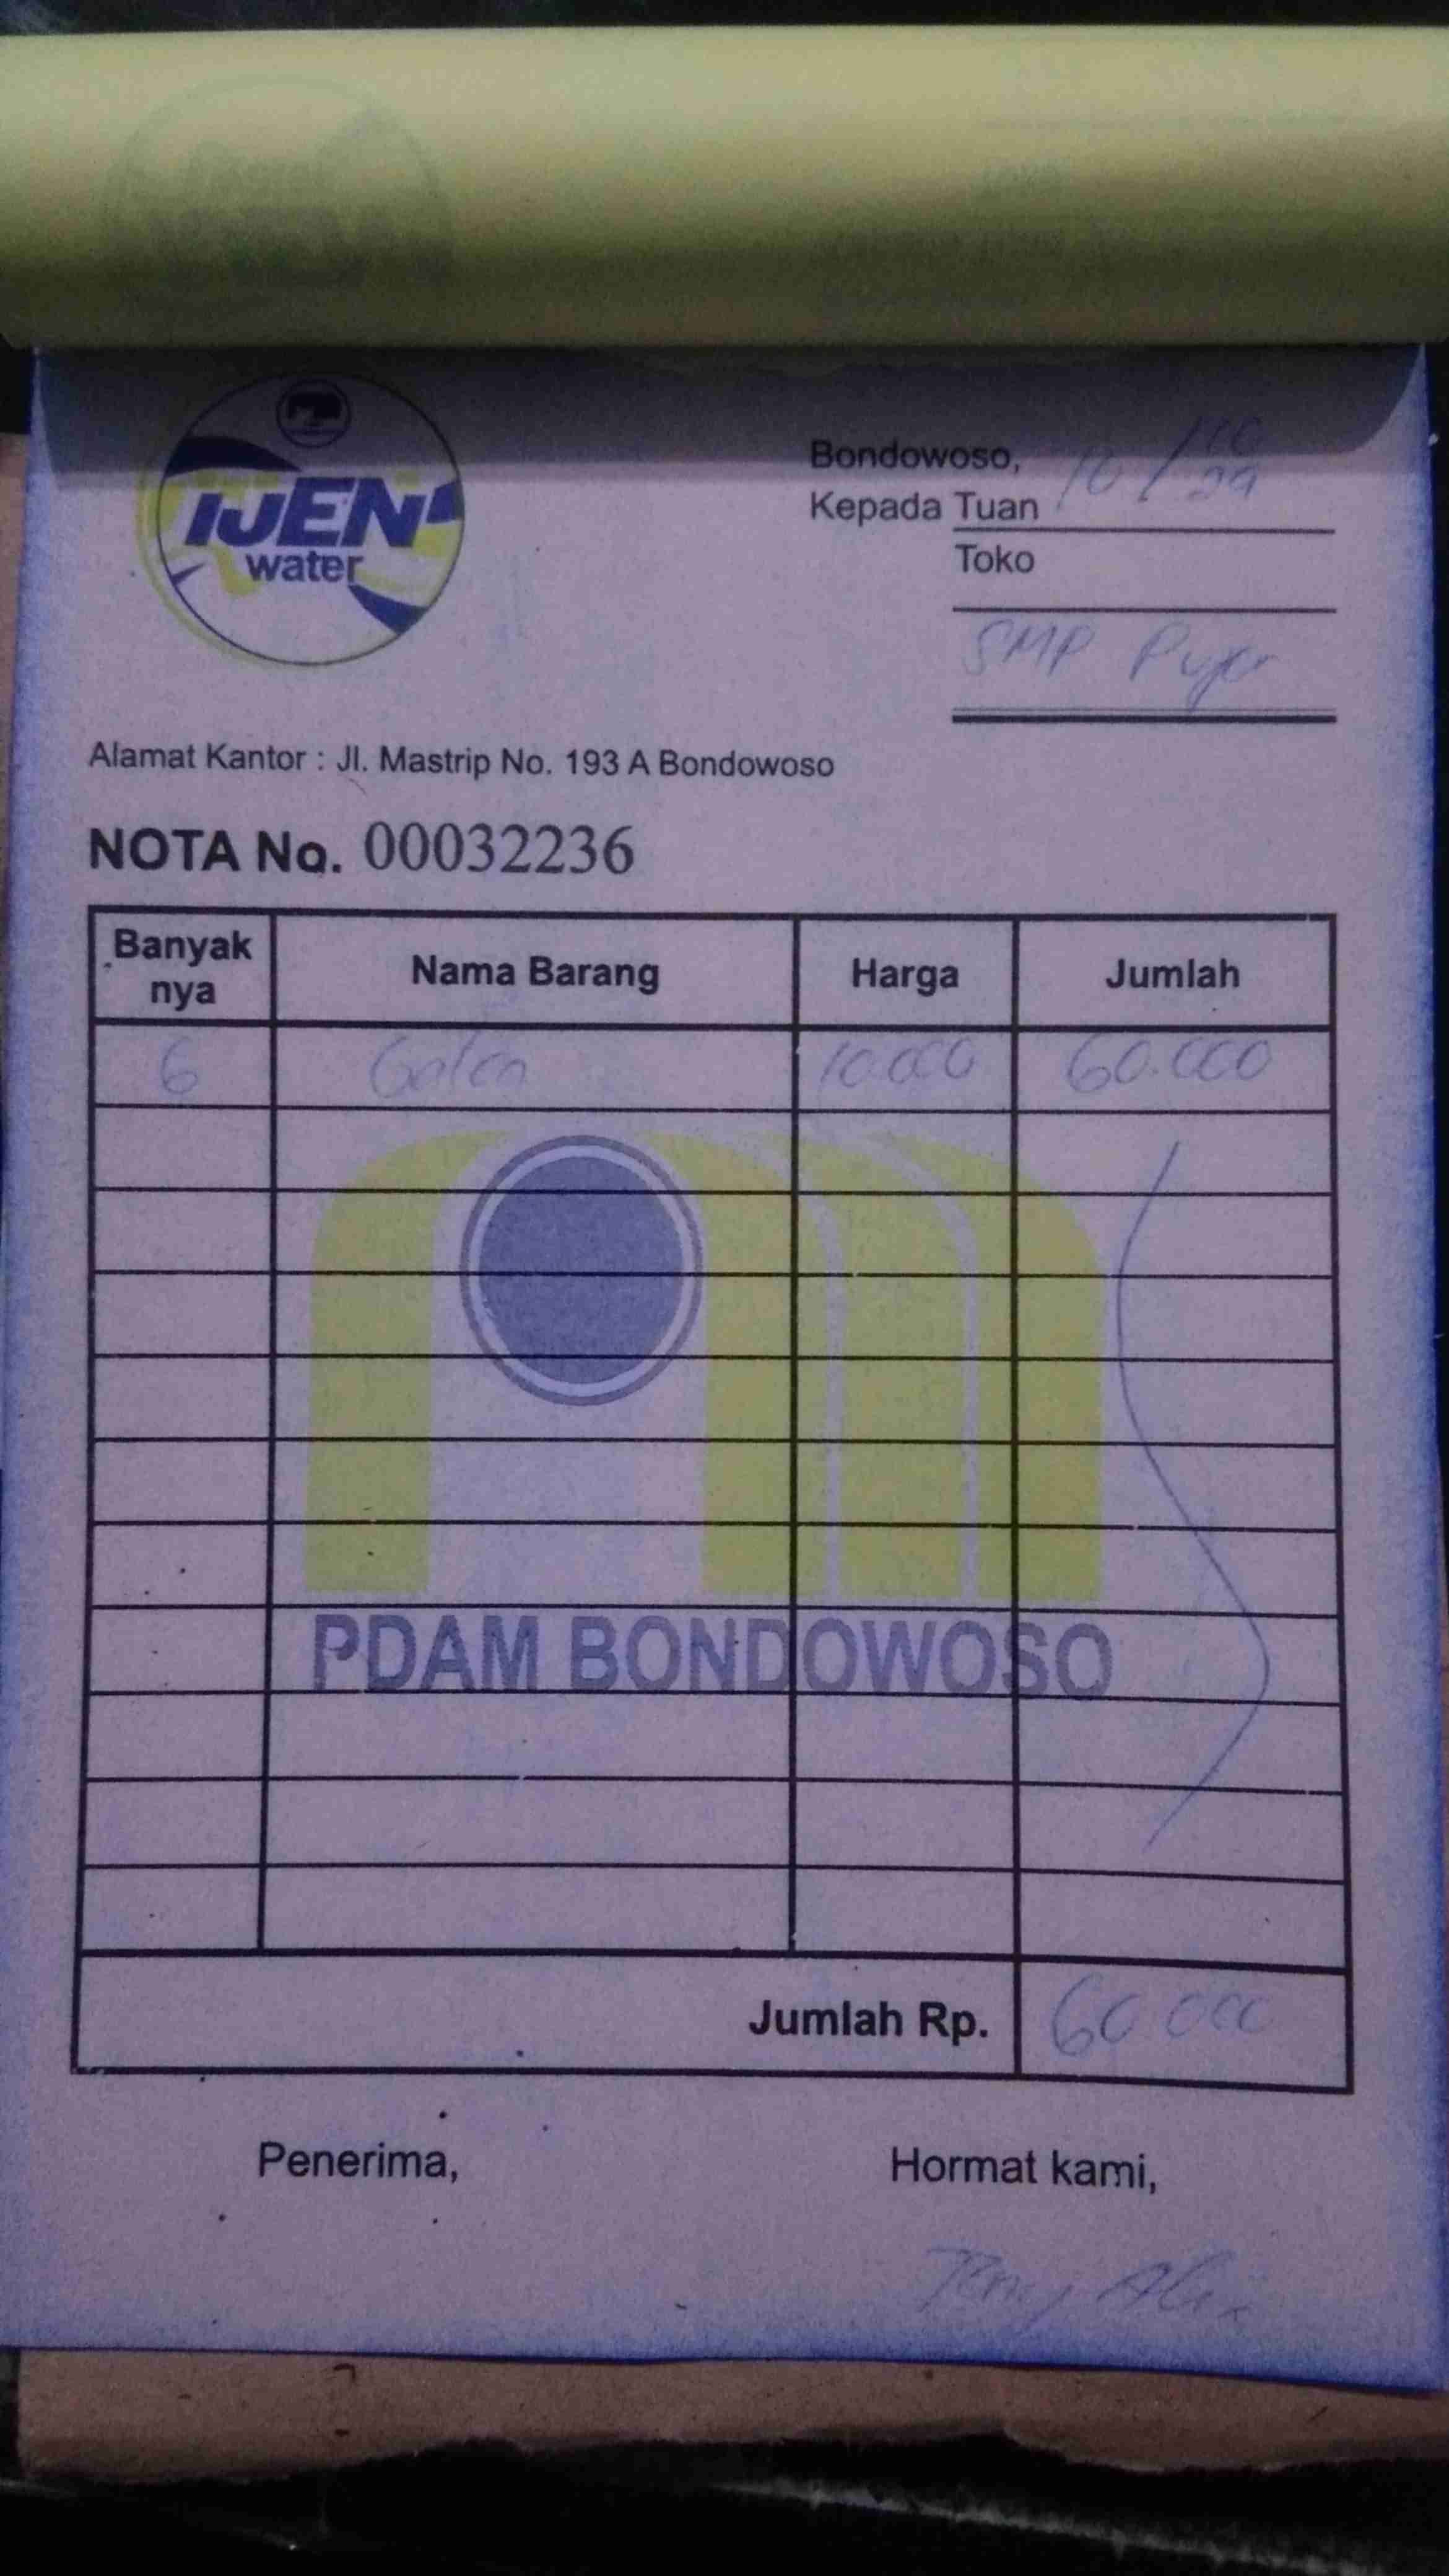 IJEN
water
Bondowoso, 10/10
24
Kepada Tuan
Toko
SMP
Alamat Kantor : Jl. Mastrip No. 193 A Bondowoso
NOTA No. 00032236
Banyak nya Nama Barang Harga Jumlah
6 Galon 10.000 60.000
PDAM BONDOWOSO
Jumlah Rp. 60.000
Penerima, Hormat kami,